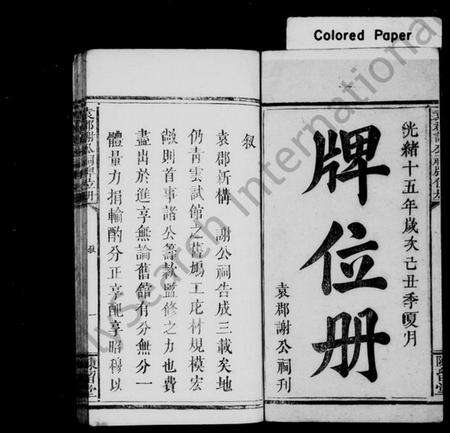 Colored Paper
光緒十五年歲次己丑季夏月
牌位册
袁郡謝公祠刊
叙
袁郡新構 謝公祠告成三載矣地
仍靑雲試館之舊塲工庀材規模宏
敞則首事諸公籌欵監修之力也費
盡出於進享無論舊館有分無分一
體量力捐輸酌分正享配享昭穆以
袁郡謝公祠牌位册
叙
一
陳留堂
MySearch International